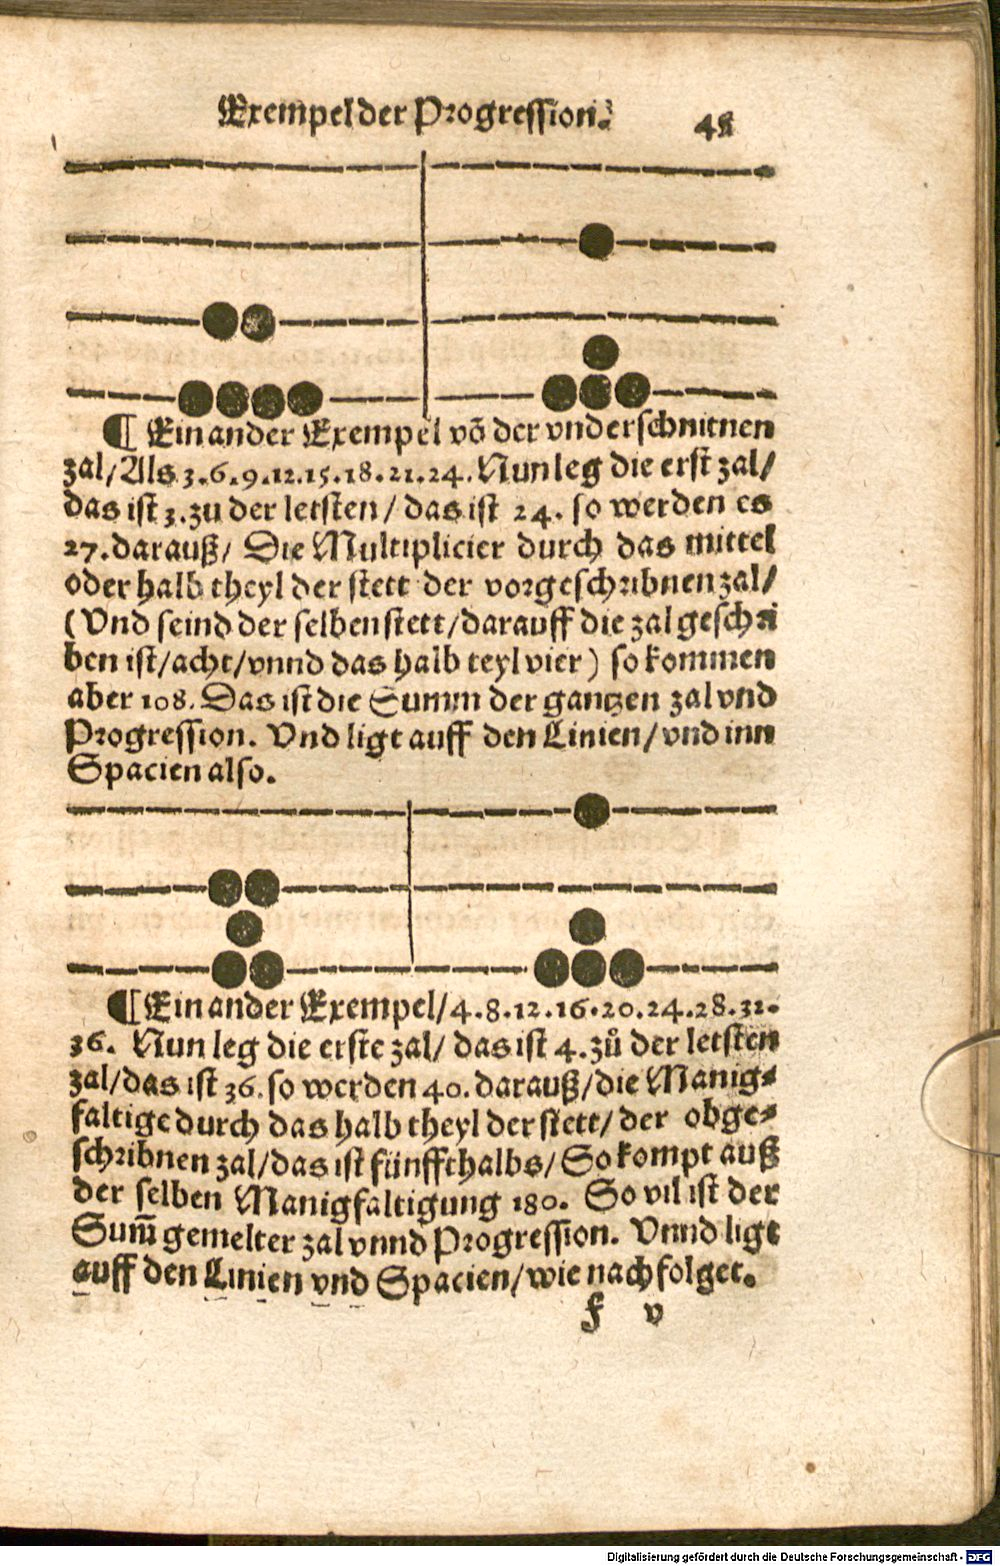 Exempel der Progression. 45
¶ Ein ander Exempel võ der vnderschnitnen
zal/Als 3.6.9.12.15.18.21.24. Nun leg die erst zal/
das ist 3. zu der letsten/ das ist 24. so werden es
27. darauß/ Die Multiplicier durch das mittel
oder halb theyl der stett der vorgeschribnen zal/
(Vnd seind der selben stett/darauff die zal geschri
ben ist/acht/vnnd das halb teyl vier) so kommen
aber 108. Das ist die Summ der gantzen zal vnd
Progression. Vnd ligt auff den Linien/vnd inn
Spacien also.
¶ Ein ander Exempel/4.8.12.16.20.24.28.32.
36. Nun leg die erste zal/ das ist 4. zů der letsten
zal/das ist 36. so werden 40. darauß/die Manig-
faltige durch das halb theyl der stett/ der obge-
schribnen zal/das ist fünffthalbs/ So kompt auß
der selben Manigfaltigung 180. So vil ist der
Sum̃ gemelter zal vnnd Progression. Vnnd ligt
auff den Linien vnd Spacien/wie nachfolget.
f v
Digitalisierung gefördert durch die Deutsche Forschungsgemeinschaft - DFG